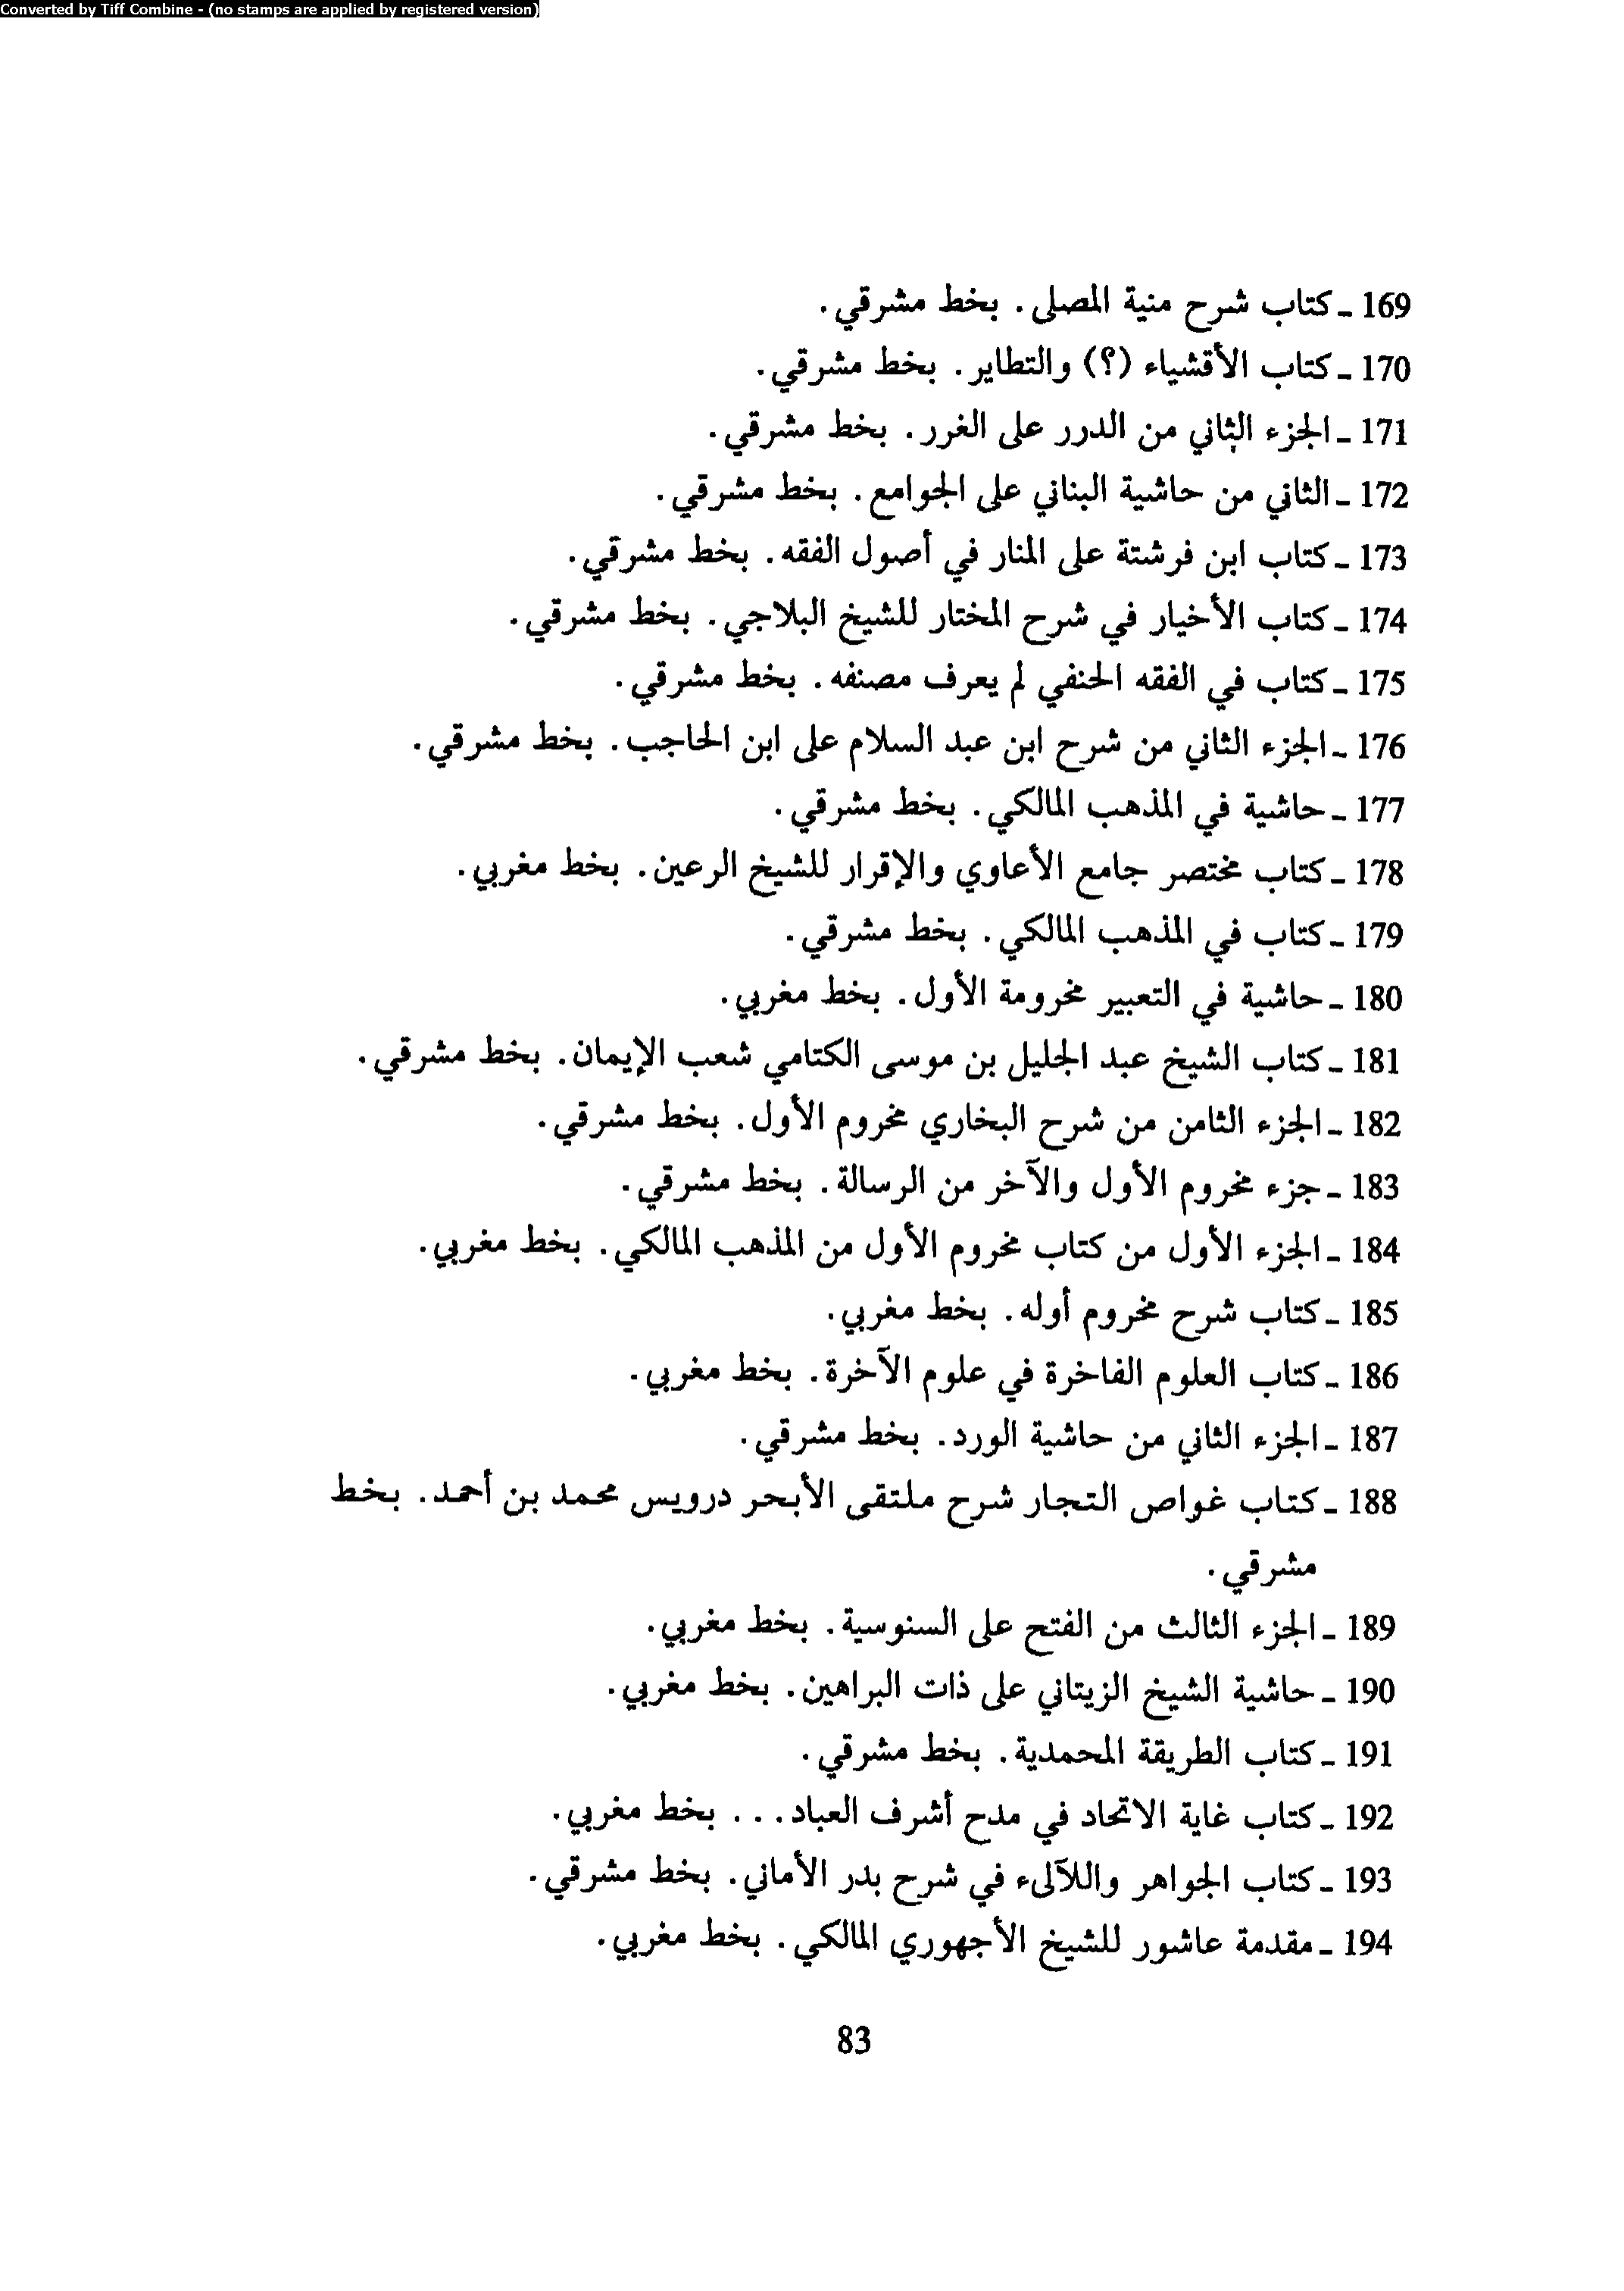 Converted by Tiff Combine - (no stamps are applied by registered version)
169 ـ كتاب شرح منية المصلى. بخط مشرقي.
170 ـ كتاب الأقشياء (؟) والتطاير. بخط مشرقي.
171 ـ الجزء الثاني من الدرر على الغرر. بخط مشرقي.
172 ـ الثاني من حاشية البناني على الجوامع. بخط مشرقي.
173 ـ كتاب ابن فرشتة على المنار في أصول الفقه. بخط مشرقي.
174 ـ كتاب الأخيار في شرح المختار للشيخ البلاجي. بخط مشرقي.
175 ـ كتاب في الفقه الحنفي لم يعرف مصنفه. بخط مشرقي.
176 ـ الجزء الثاني من شرح ابن عبد السلام على ابن الحاجب. بخط مشرقي.
177 ـ حاشية في المذهب المالكي. بخط مشرقي.
178 ـ كتاب مختصر جامع الأعاوي والإقرار للشيخ الرعين. بخط مغربي.
179 ـ كتاب في المذهب المالكي. بخط مشرقي.
180 ـ حاشية في التعبير مخرومة الأول. بخط مغربي.
181 ـ كتاب الشيخ عبد الجليل بن موسى الكتامي شعب الإيمان. بخط مشرقي.
182 ـ الجزء الثامن من شرح البخاري مخروم الأول. بخط مشرقي.
183 ـ جزء مخروم الأول والآخر من الرسالة. بخط مشرقي.
184 ـ الجزء الأول من كتاب مخروم الأول من المذهب المالكي. بخط مغربي.
185 ـ كتاب شرح مخروم أوله. بخط مغربي.
186 ـ كتاب العلوم الفاخرة في علوم الآخرة. بخط مغربي.
187 ـ الجزء الثاني من حاشية الورد. بخط مشرقي.
188 ـ كتاب غواص التجار شرح ملتقى الأبحر درويس محمد بن أحمد. بخط
مشرقي.
189 ـ الجزء الثالث من الفتح على السنوسية. بخط مغربي.
190 ـ حاشية الشيخ الزيتاني على ذات البراهين. بخط مغربي.
191 ـ كتاب الطريقة المحمدية. بخط مشرقي.
192 ـ كتاب غاية الاتحاد في مدح أشرف العباد... بخط مغربي.
193 ـ كتاب الجواهر واللآلىء في شرح بدر الأماني. بخط مشرقي.
194 ـ مقدمة عاشور للشيخ الأجهوري المالكي. بخط مغربي.
83